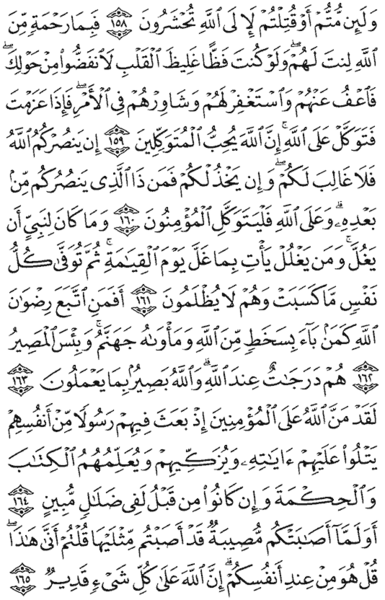 وَلَئِن مُّتُّمْ أَوْ قُتِلْتُمْ لَإِلَى ٱللَّهِ تُحْشَرُونَ ١٥٨ فَبِمَا رَحْمَةٍ مِّنَ
ٱللَّهِ لِنتَ لَهُمْ ۖ وَلَوْ كُنتَ فَظًّا غَلِيظَ ٱلْقَلْبِ لَٱنفَضُّوا۟ مِنْ حَوْلِكَ ۖ
فَٱعْفُ عَنْهُمْ وَٱسْتَغْفِرْ لَهُمْ وَشَاوِرْهُمْ فِى ٱلْأَمْرِ ۖ فَإِذَا عَزَمْتَ
فَتَوَكَّلْ عَلَى ٱللَّهِ ۚ إِنَّ ٱللَّهَ يُحِبُّ ٱلْمُتَوَكِّلِينَ ١٥٩ إِن يَنصُرْكُمُ ٱللَّهُ
فَلَا غَالِبَ لَكُمْ ۖ وَإِن يَخْذُلْكُمْ فَمَن ذَا ٱلَّذِى يَنصُرُكُم مِّنۢ
بَعْدِهِۦ ۗ وَعَلَى ٱللَّهِ فَلْيَتَوَكَّلِ ٱلْمُؤْمِنُونَ ١٦٠ وَمَا كَانَ لِنَبِىٍّ أَن
يَغُلَّ ۚ وَمَن يَغْلُلْ يَأْتِ بِمَا غَلَّ يَوْمَ ٱلْقِيَـٰمَةِ ۚ ثُمَّ تُوَفَّىٰ كُلُّ
نَفْسٍ مَّا كَسَبَتْ وَهُمْ لَا يُظْلَمُونَ ١٦١ أَفَمَنِ ٱتَّبَعَ رِضْوَٰنَ
ٱللَّهِ كَمَنۢ بَآءَ بِسَخَطٍ مِّنَ ٱللَّهِ وَمَأْوَىٰهُ جَهَنَّمُ ۚ وَبِئْسَ ٱلْمَصِيرُ
١٦٢ هُمْ دَرَجَـٰتٌ عِندَ ٱللَّهِ ۗ وَٱللَّهُ بَصِيرٌۢ بِمَا يَعْمَلُونَ ١٦٣
لَقَدْ مَنَّ ٱللَّهُ عَلَى ٱلْمُؤْمِنِينَ إِذْ بَعَثَ فِيهِمْ رَسُولًا مِّنْ أَنفُسِهِمْ
يَتْلُوا۟ عَلَيْهِمْ ءَايَـٰتِهِۦ وَيُزَكِّيهِمْ وَيُعَلِّمُهُمُ ٱلْكِتَـٰبَ
وَٱلْحِكْمَةَ وَإِن كَانُوا۟ مِن قَبْلُ لَفِى ضَلَـٰلٍ مُّبِينٍ ١٦٤
أَوَلَمَّآ أَصَـٰبَتْكُم مُّصِيبَةٌ قَدْ أَصَبْتُم مِّثْلَيْهَا قُلْتُمْ أَنَّىٰ هَـٰذَا ۖ
قُلْ هُوَ مِنْ عِندِ أَنفُسِكُمْ ۗ إِنَّ ٱللَّهَ عَلَىٰ كُلِّ شَىْءٍ قَدِيرٌ ١٦٥